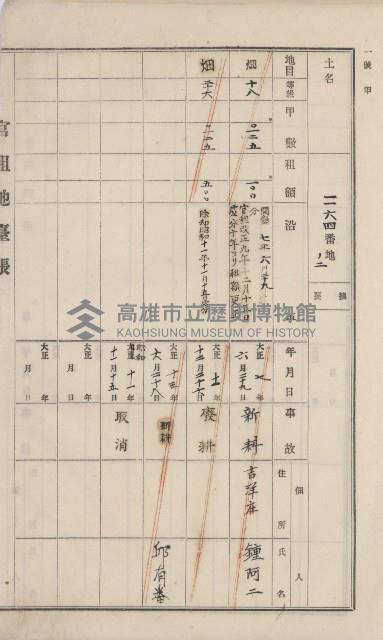 一號甲
土名
一二六四番地ノ二
摘要
地目
等級
甲數
租額
沿革
年月日
事故
佃人
住所
氏名
畑
十八
〇一二五
一〇〇
開墾 七年六月三十九
官租改正九年十二月十五日
處分十年ヨリ租額更正
大正七年
六月三十九日
新耕
吉洋庄
鍾阿二
畑
二六
一二五
五〇〇
除却昭和十一年十一月十五日處分
大正十一年
十二月三十六日
廢耕
大正十三年
六月二十八日
新耕
邱有番
大正
昭和
十一年
十一月十五日
取消
大正 年
月 日
大正 年
月 日
官租地臺帳
高雄市立歷史博物館
KAOHSIUNG MUSEUM OF HISTORY